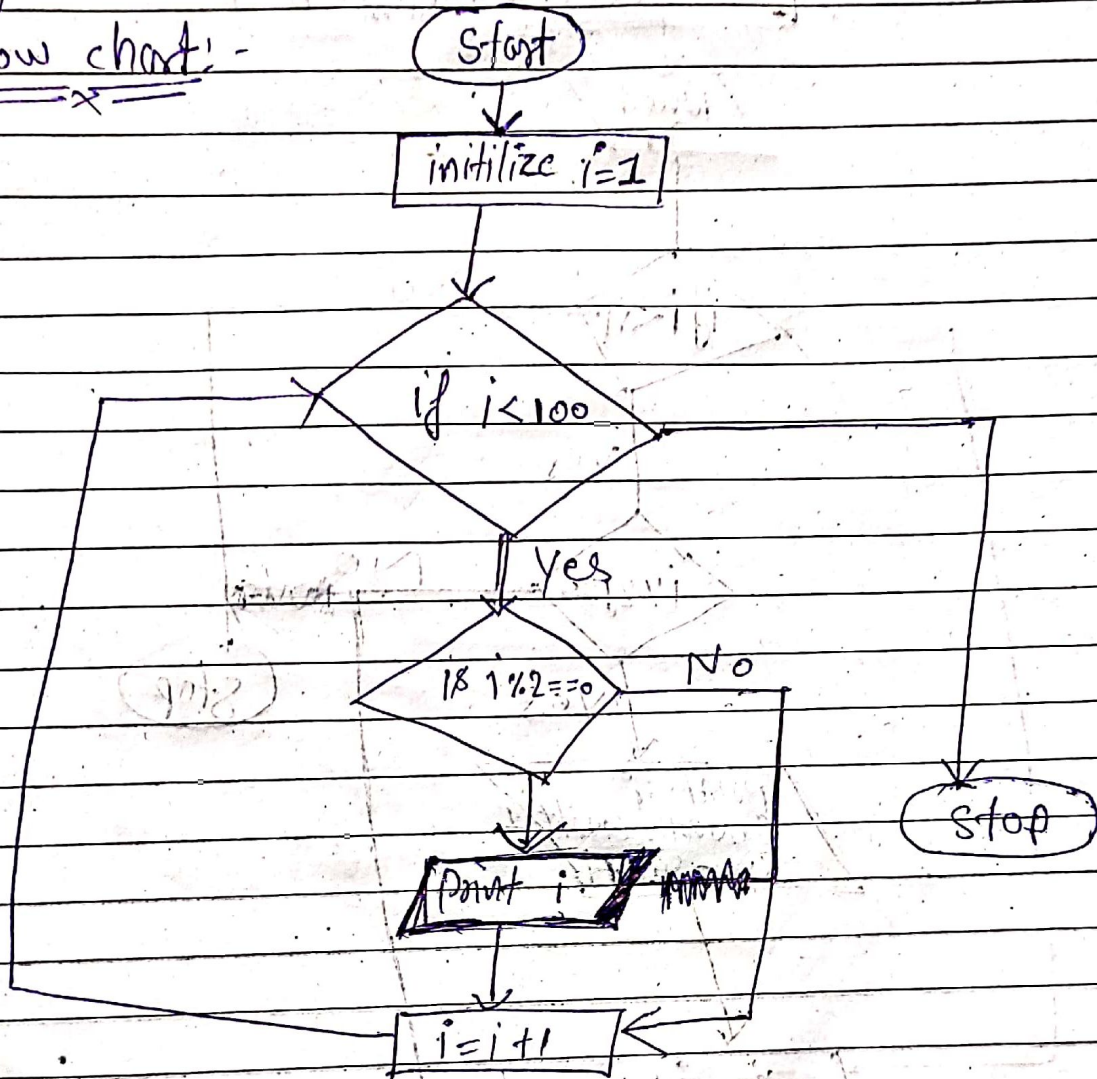 ow chart:-
Start
initilize i=1
if i<100
Yes
is i%2==0
No
Stop
Print i
i=i+1